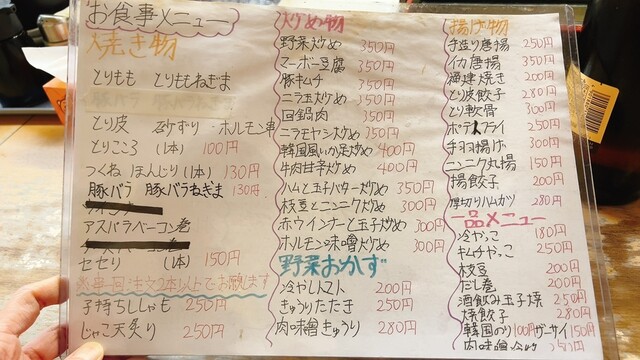 お食事メニュー
焼き物
とりもも とりもねぎま
とり皮 砂ずり ホルモン串
とりこころ (1本) 100円
つくね ぼんじり(1本) 130円
豚バラ 豚バラねぎま 130円
アスパラベーコン巻
セセリ (1本) 150円
※串一回注文2本以上でお願いします
子持ちししゃも 250円
じゃこ天炙り 250円
炒め物
野菜炒め 350円
マーボー豆腐 350円
豚キムチ 350円
ニラ玉炒め 350円
回鍋肉 350円
ニラモヤシ炒め 350円
韓国風いか足炒め 400円
牛肉甘辛炒め 400円
ハムと玉子バター炒め 350円
枝豆とニンニク炒め 300円
赤ウインナーと玉子炒め 300円
ホルモン味噌炒め 300円
野菜おかず
冷やしトマト 200円
きゅうりたたき 250円
肉味噌きゅうり 280円
揚げ物
手造り唐揚 250円
イカ唐揚 350円
磯辺焼き 200円
とり皮餃子 280円
とり軟骨 300円
ポテトフライ 250円
手羽揚げ 300円
ニンニク丸揚 150円
揚餃子 200円
厚切りハムカツ 280円
一品メニュー
冷やっこ 180円
キムチやっこ 250円
枝豆 200円
だし巻 200円
酒飲み玉子焼 250円
焼餃子 280円
韓国のり100円 ザーサイ150円